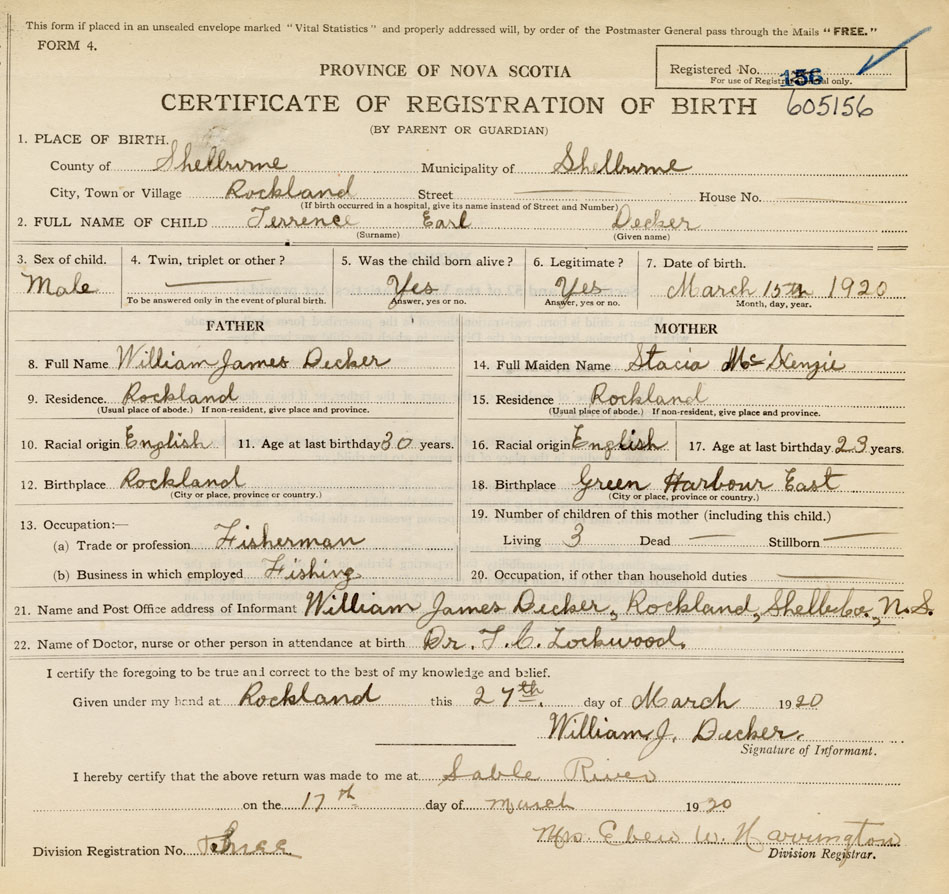 This form if placed in an unsealed envelope marked "Vital Statistics" and properly addressed will, by order of the Postmaster General pass through the Mails "FREE."
FORM 4.
PROVINCE OF NOVA SCOTIA
Registered No. 156
For use of Registrar General only.
CERTIFICATE OF REGISTRATION OF BIRTH 605156
(BY PARENT OR GUARDIAN)
1. PLACE OF BIRTH.
County of Shelburne Municipality of Shelburne
City, Town or Village Rockland Street House No.
(If birth occurred in a hospital, give its name instead of Street and Number)
2. FULL NAME OF CHILD Terrence Earl Decker
(Surname) (Given name)
3. Sex of child. 4. Twin, triplet or other? 5. Was the child born alive? 6. Legitimate? 7. Date of birth.
Male Yes Yes March 15th 1920
To be answered only in the event of plural birth. Answer, yes or no. Answer, yes or no. Month, day, year.
FATHER MOTHER
8. Full Name William James Decker 14. Full Maiden Name Stacia McKenzie
9. Residence. Rockland 15. Residence Rockland
(Usual place of abode.) If non-resident, give place and province. (Usual place of abode.) If non-resident, give place and province.
10. Racial origin English 11. Age at last birthday 30 years. 16. Racial origin English 17. Age at last birthday 23 years.
12. Birthplace Rockland 18. Birthplace Green Harbour East
(City or place, province or country.) (City or place, province or country.)
13. Occupation:— 19. Number of children of this mother (including this child.)
(a) Trade or profession Fisherman Living 3 Dead — Stillborn —
(b) Business in which employed Fishing 20. Occupation, if other than household duties
21. Name and Post Office address of Informant William James Decker, Rockland, Shelb. Co., N.S.
22. Name of Doctor, nurse or other person in attendance at birth Dr. T. C. Lockwood.
I certify the foregoing to be true and correct to the best of my knowledge and belief.
Given under my hand at Rockland this 27th. day of March 1920
William J. Decker.
Signature of Informant.
I hereby certify that the above return was made to me at Sable River
on the 17th day of march 1920
Mrs. Eben W. Harrington
Division Registration No. Three Division Registrar.